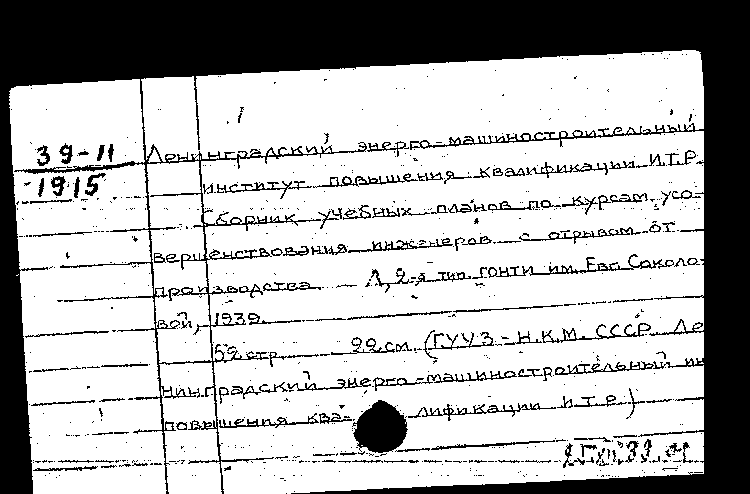 39-11
1915
Ленинградский энерго-машиностроительный
институт повышения квалификации И.Т.Р.
Сборник учебных планов по курсам усо-
вершенствования инженеров с отрывом от
производства. Л, 2-я тип. ГОНТИ им. Евг. Соколо-
вой, 1939.
52 стр. 22 см. (ГУУЗ - Н.К.М. СССР. Ле
нинградский энерго-машиностроительный ин
повышения ква- лификации И.Т.Р.)